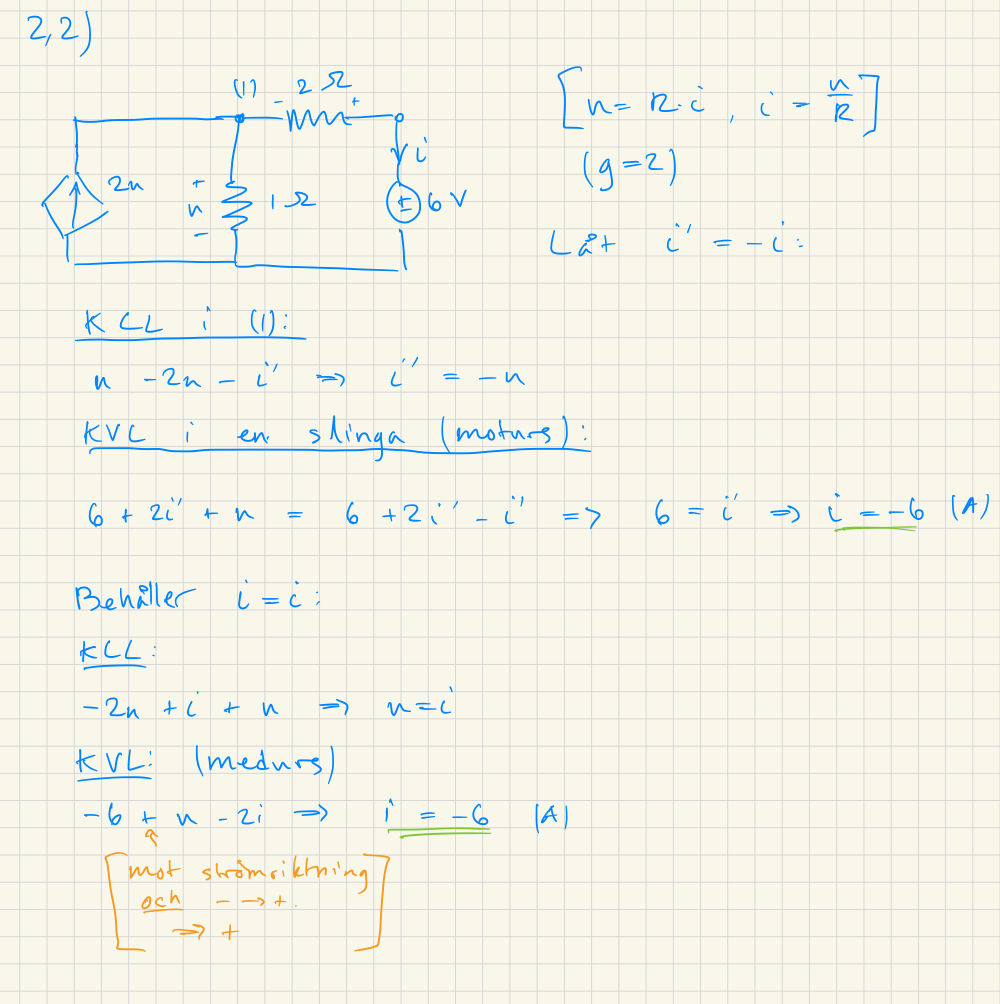 2,2)
(1) - 2 Ω +
[u = R·i , i = u/R]
i
2u + u - 1 Ω ± 6 V
(g=2)
Låt i' = -i:
KCL i (1):
u - 2u - i' => i' = -u
KVL i en slinga (moturs):
6 + 2i' + u = 6 + 2i' - i' => 6 = i' => i = -6 (A)
Behåller i = i:
KCL:
-2u + i + u => u = i
KVL: (medurs)
-6 + u - 2i => i = -6 (A)
[mot strömriktning
och - → +.
=> +]